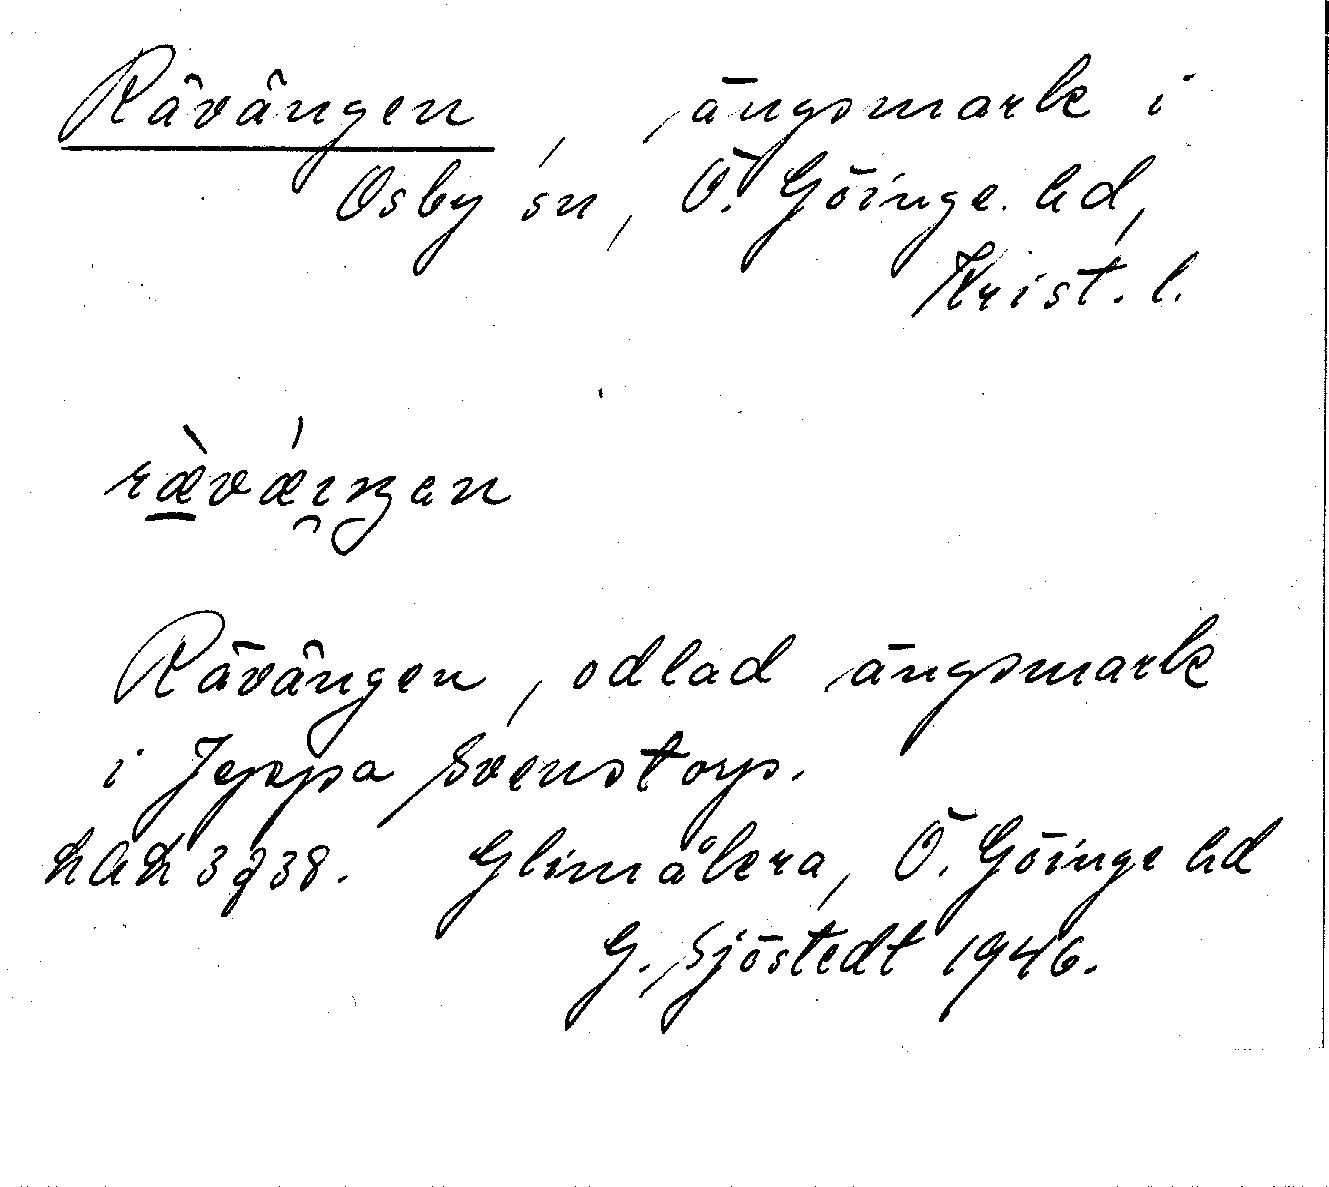 Rävängen, ängsmark i
Osby sn, Ö. Göinge hd,
Krist. l.
Rävängen, odlad ängsmark
i Jeppa Svenstorp.
LAL 3938. Glimåkra, Ö. Göinge hd
G. Sjöstedt 1946.